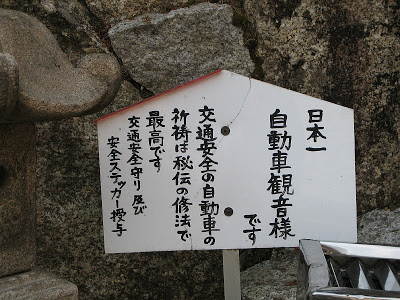 日本一
自動車観音様
です
交通安全の自動車の
祈祷は秘伝の修法で
最高です
交通安全守り及び
安全ステッカー授与